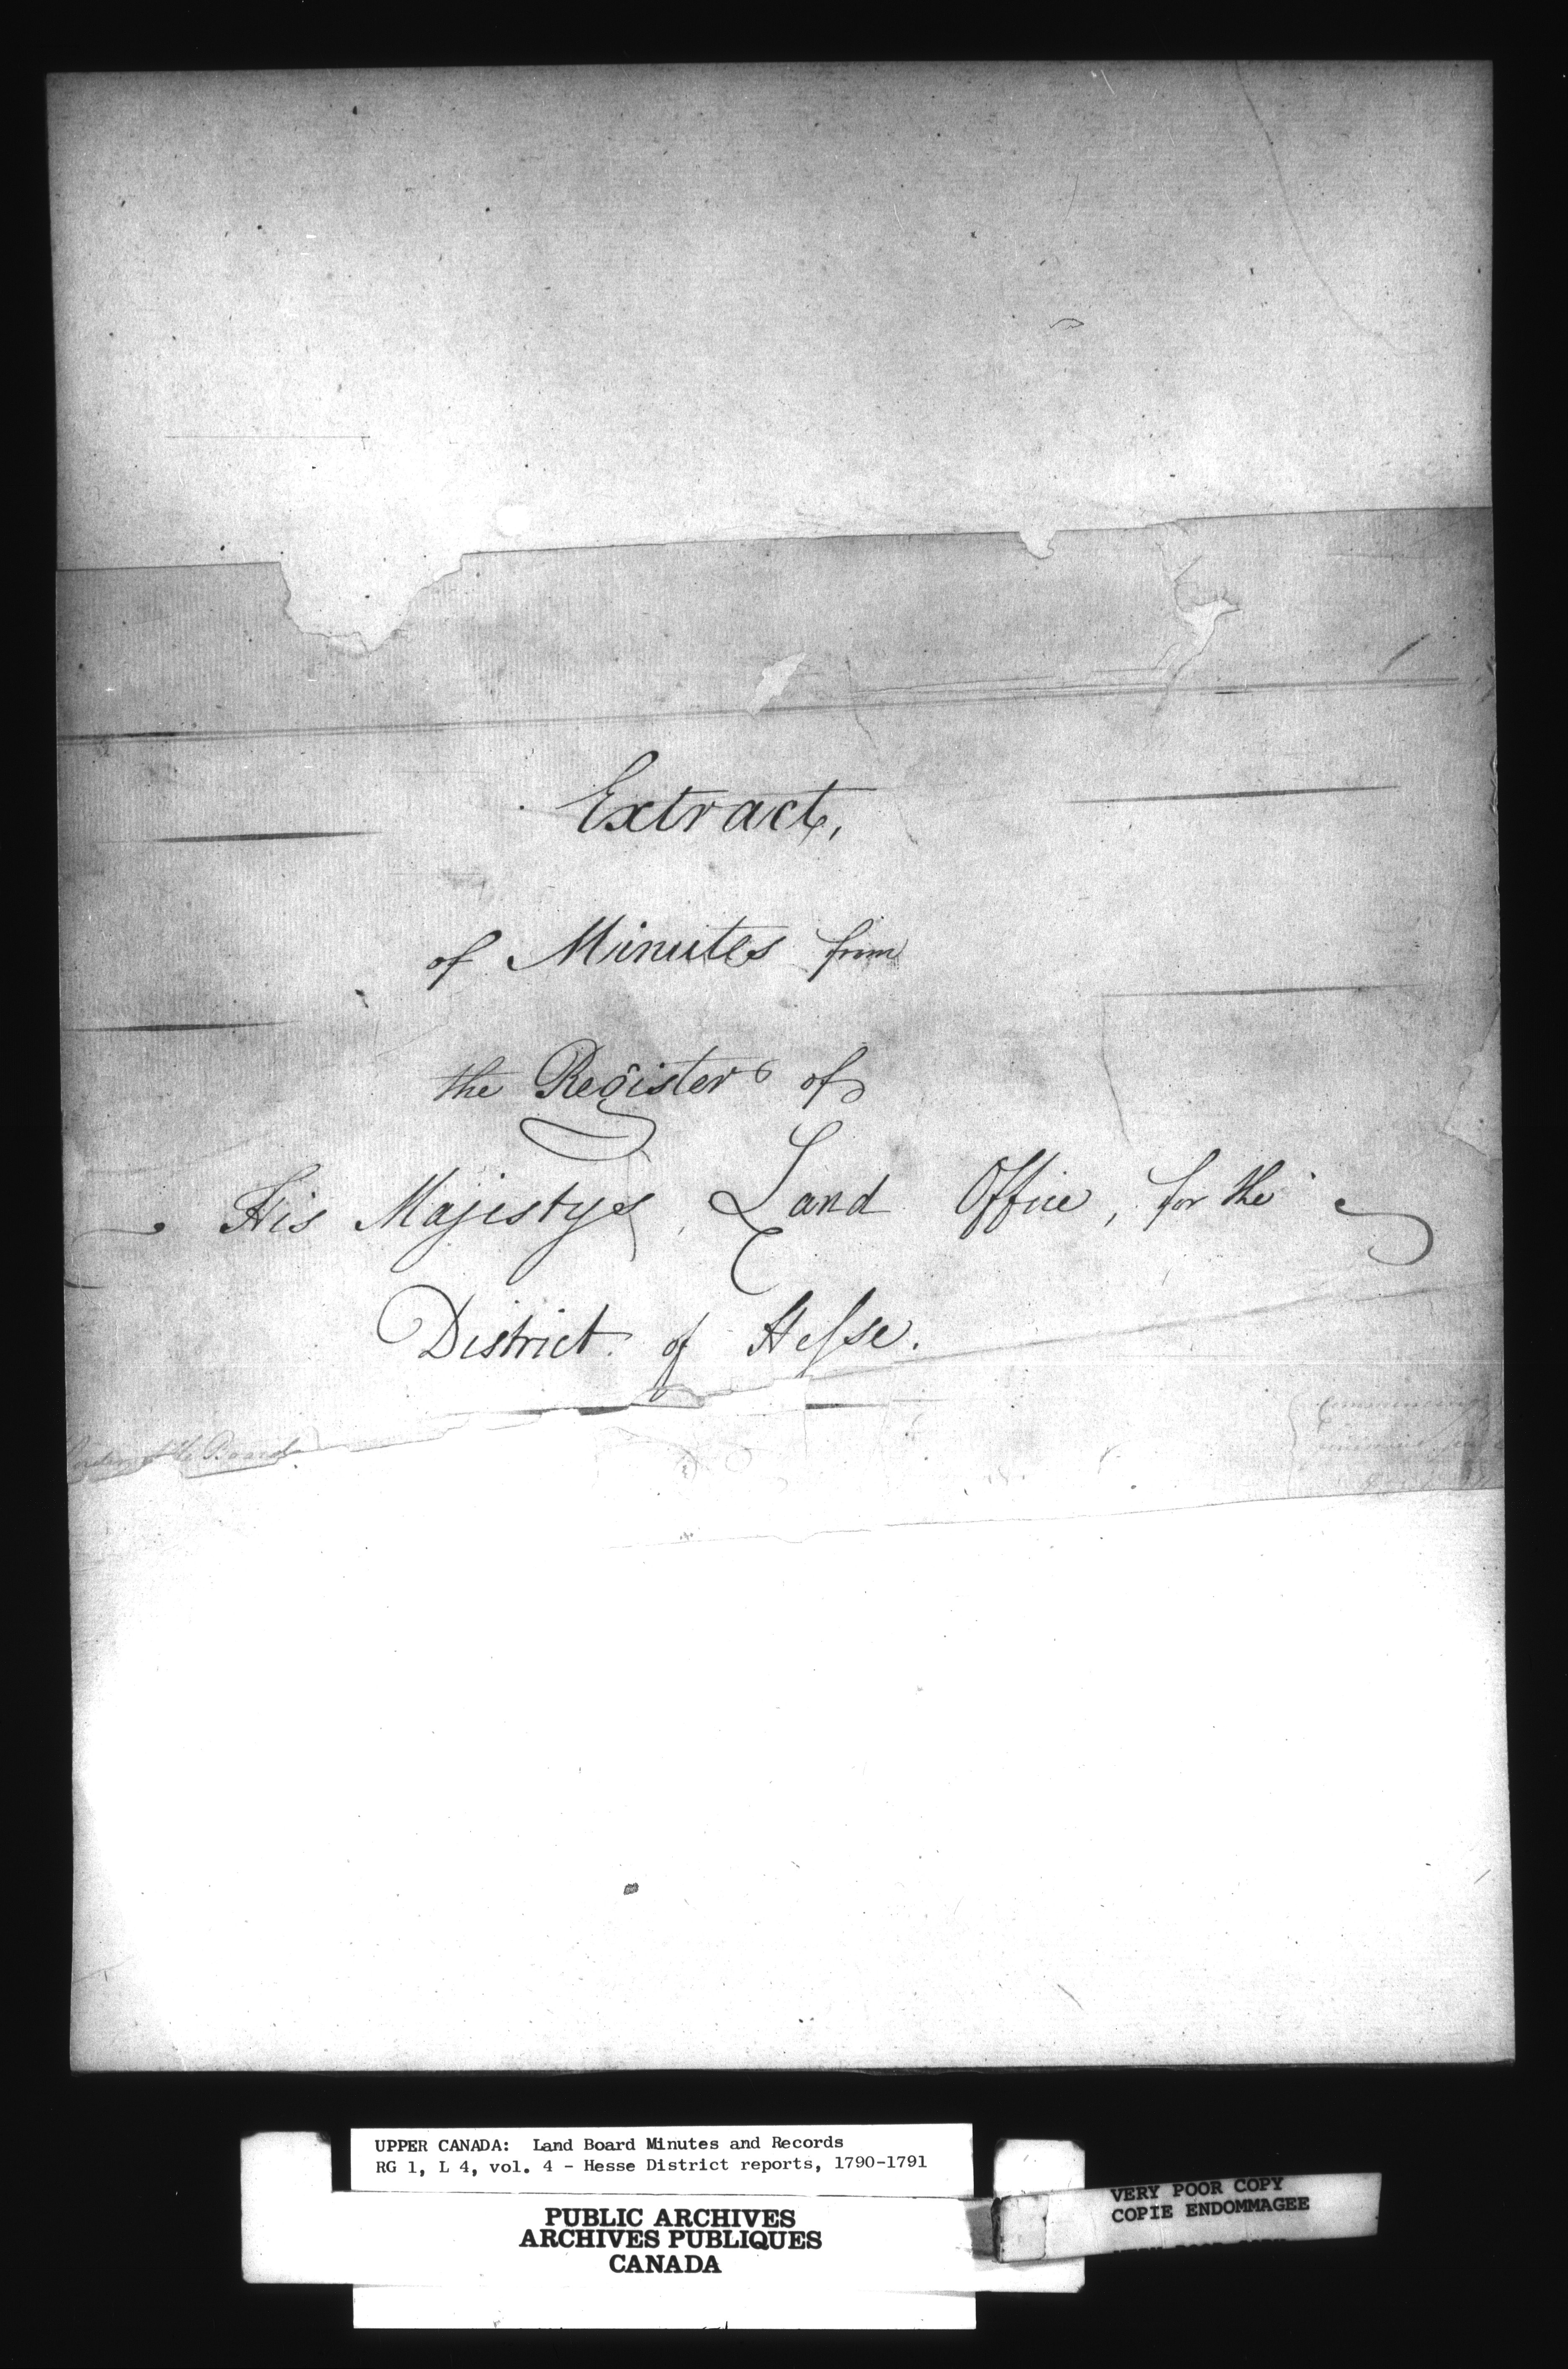 Extract,
of Minutes from
the Registers of
His Majestys Land Office, for the
District of Hesse.
of the Board
UPPER CANADA: Land Board Minutes and Records
RG 1, L 4, vol. 4 - Hesse District reports, 1790-1791
PUBLIC ARCHIVES
ARCHIVES PUBLIQUES
CANADA
VERY POOR COPY
COPIE ENDOMMAGEE